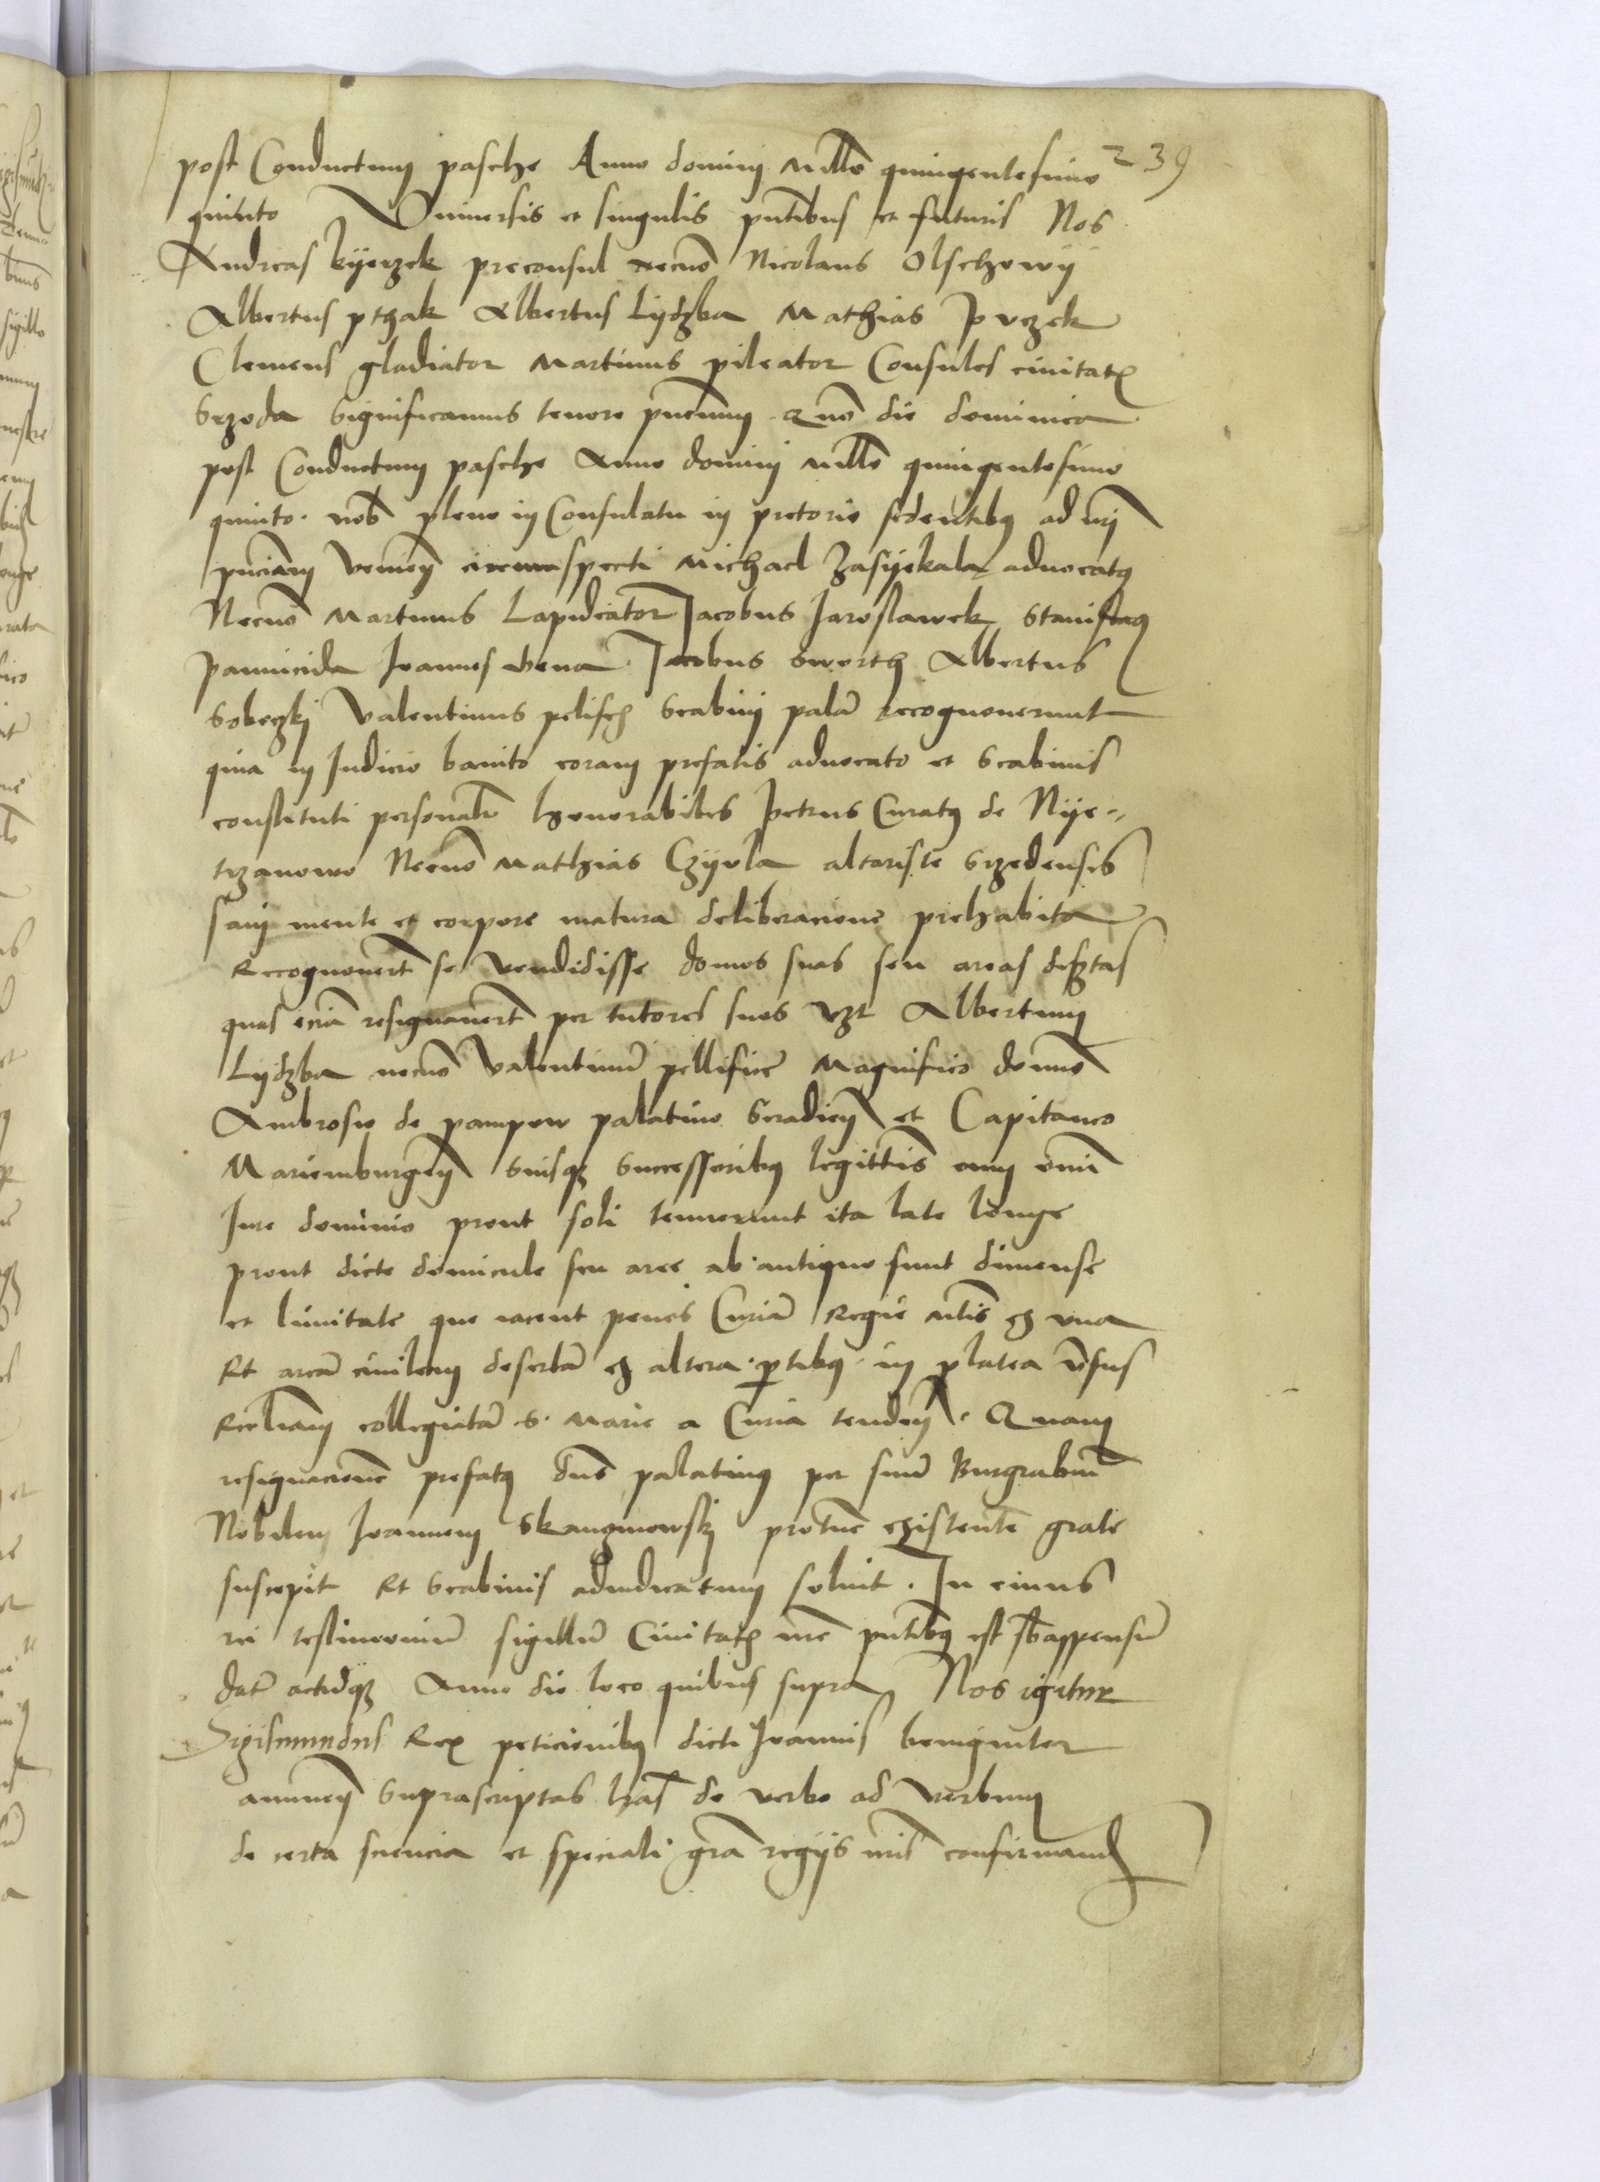 239
post Conductum pasche Anno domini millo quingentesimo
quinto Universis et singulis pntibus et futuris Nos
Andreas kyerzek preconsul necno Nicolaus Olschowy
Albertus pthak Albertus Lydzba Mathias Purzek
Clemens gladiator Martinus pileator Consules civitatis
Srzoda Significamus tenore pncium Quo die dominica
post Conductum pasche Anno domini millo quingentesimo
quinto nob pleno in Consulatu in pretorio sedentibus ad nri
pnciam venien circumspecti Michael Zasyekala advocatus
Necno Martinus Lapicator Jacobus Jaroslawek Stanislaus
pannicida Joannes Jacobus sworth Albertus
Sobeczki Valentinus pelisch Scabini pala recognoverunt
quia in Judicio banito coram prefatis advocato et Scabinis
constituti personalr honorabiles Petrus Curatus de Nye-
trzanowo Necno Mathias Czyola altariste Srzedenses
sani mente et corpore matura deliberacione prehabita
Recognovert se vendidisse domos suas seu areas desertas
quas ecia resignavert per tutores suos vzt Albertum
Lydzba necno Valentinu pellifice Magnifico domno
Ambrosio de pampow palatino Siradien et Capitaneo
Mariemburgen Suisque Successoribus legittis cum omi
Jure dominio prout soli tenuerunt ita late longe
prout dicte domicule seu aree ab antiquo sunt dimense
et limitate que iacent penes Curia Regie mtis ex una
Et area civilem deserta ex altera ptibus in platea versus
Ecclam collegiata S. Marie a Curia tenden. Quam
resignacione prefatus dns palatinus per suu Burgrabiu
Nobilem Joannem protunc existente grate
suscepit Et Scabinis adiudicatum soluit. In cuius
rei testimoniu sigillu Civitatis nre pntibus est sbappensu
dat actuque Anno die loco quibus supra Nos igitur
Sigismundus Rex peticionibus dicti Joannis benigniter
annuen Suprascriptas lras de verbo ad verbum
de certa sciencia et speciali gra regiis nris confirmand